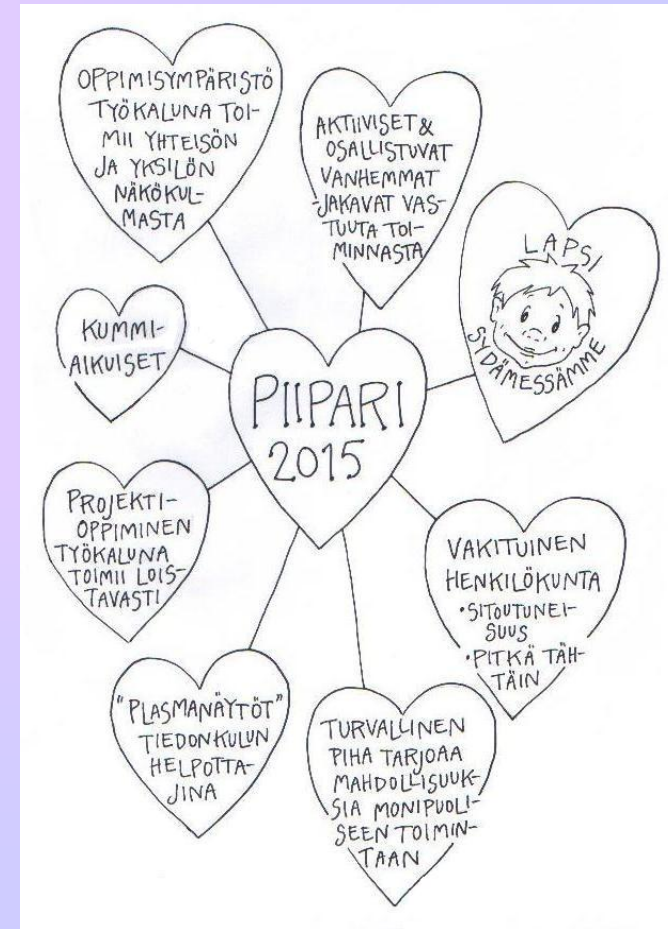 OPPIMISYMPÄRISTÖ
TYÖKALUNA TOI-
MII YHTEISÖN
JA YKSILÖN
NÄKÖKUL-
MASTA
AKTIIVISET &
OSALLISTUVAT
VANHEMMAT
-JAKAVAT VAS-
TUUTA TOI-
MINNASTA
LAPSI
SYDÄMESSÄMME
KUMMI-
AIKUISET
PIIPARI
2015
PROJEKTI-
OPPIMINEN
TYÖKALUNA
TOIMII LOIS-
TAVASTI
VAKITUINEN
HENKILÖKUNTA
•SITOUTUNEI-
SUUS
•PITKÄ TÄH-
TÄIN
"PLASMANÄYTÖT"
TIEDONKULUN
HELPOTTA-
JINA
TURVALLINEN
PIHA TARJOAA
MAHDOLLISUUK-
SIA MONIPUOLI-
SEEN TOIMIN-
TAAN